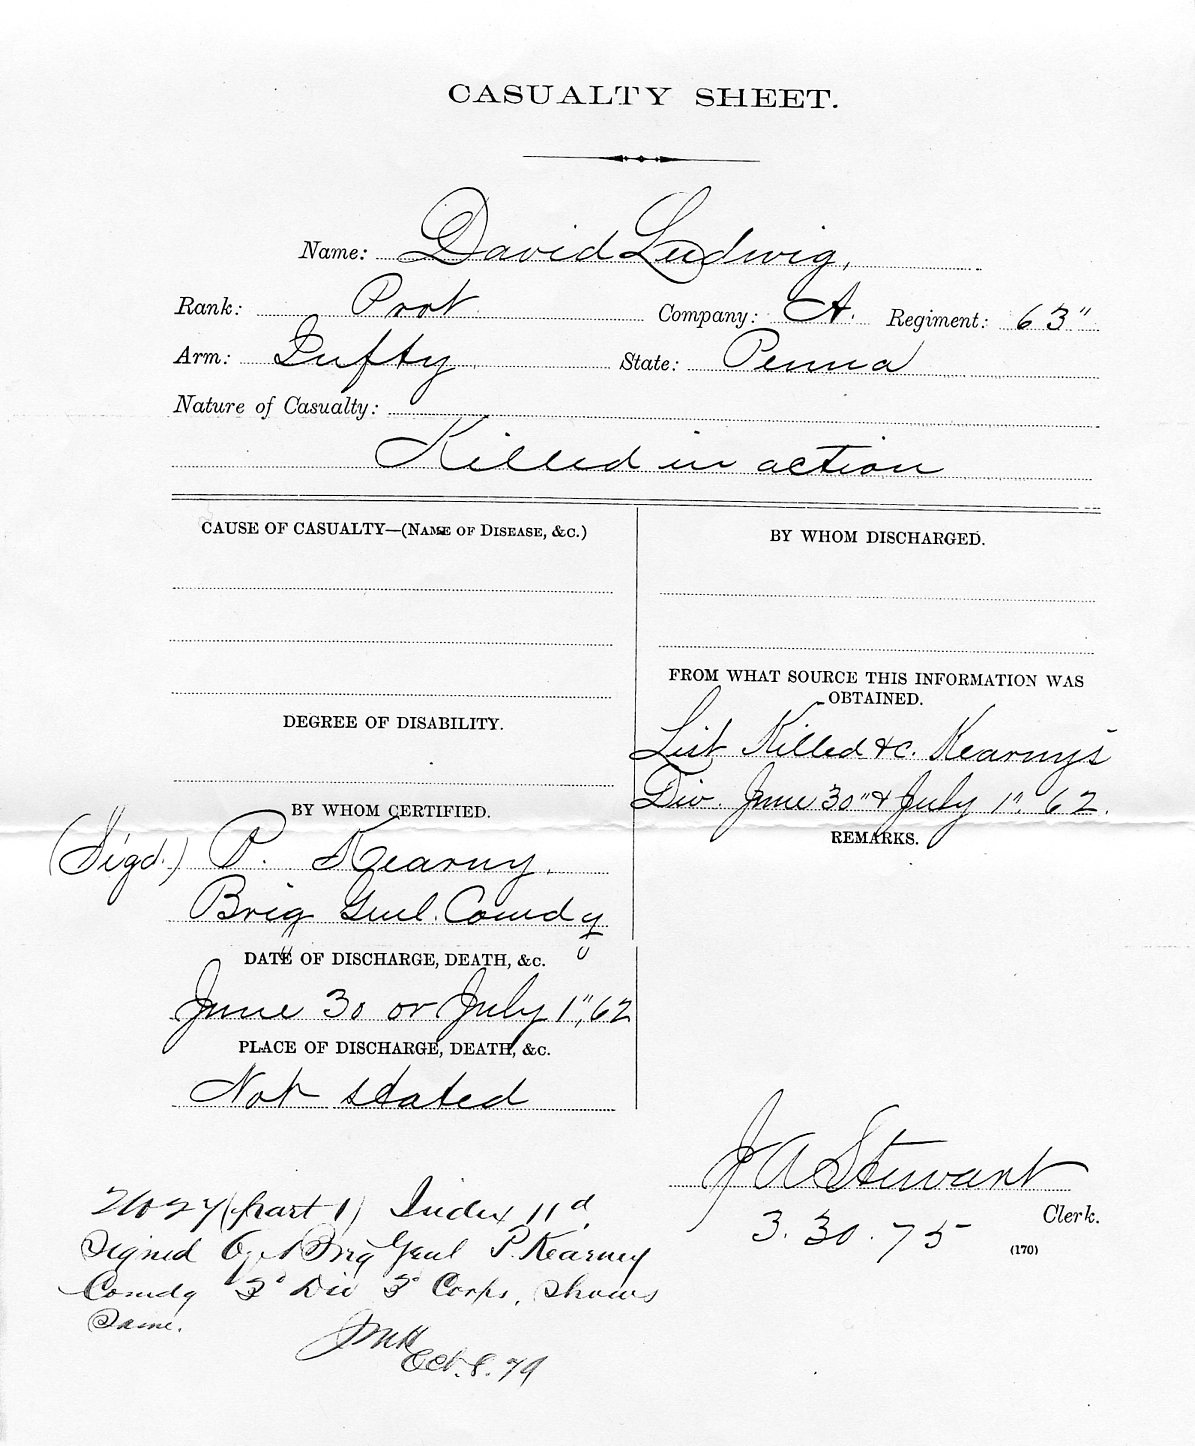 CASUALTY SHEET.
Name: David Ludwig,
Rank: Prvt Company: A. Regiment: 63"
Arm: Infty State: Penna
Nature of Casualty:
Killed in action
CAUSE OF CASUALTY—(NAME OF DISEASE, &C.)
DEGREE OF DISABILITY.
BY WHOM CERTIFIED.
(Sigd.) P. Kearny.
Brig Genl. Comdg
DATE OF DISCHARGE, DEATH, &C.
June 30 or July 1", 62
PLACE OF DISCHARGE, DEATH, &C.
Not stated
BY WHOM DISCHARGED.
FROM WHAT SOURCE THIS INFORMATION WAS
OBTAINED.
List Killed &c. Kearnys
Div. June 30" & July 1", 62.
REMARKS.
J A Stewart
Clerk.
3. 30. 75
(170)
(part 1) Index 11 d.
Signed by Brig Genl P. Kearney
Comdg 3d Div 3d Corps, Shows
Same.
Oct. 8. 79